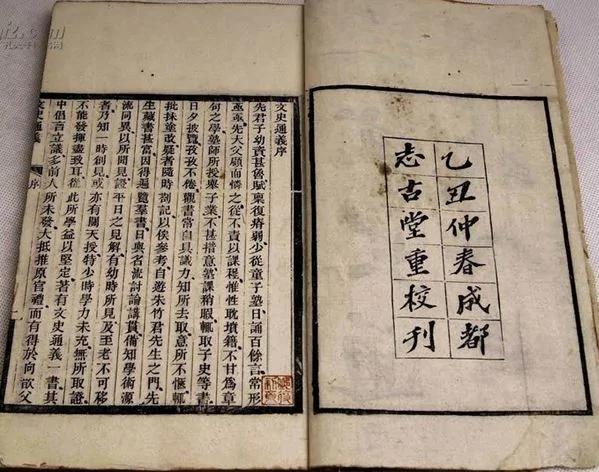 乙丑仲春成都
志古堂重校刊
文史通義序
先君子幼資甚魯賦稟復瘠弱少從童子塾日誦百餘言常形
亟亟先大父顧而憐之從不責以課程惟性耽墳籍不甘爲章
句之學塾師所授舉子業不甚措意塾課稍暇輒取子史等書
日夕披覽孜孜不倦觀書常自具識力知所去取意所不愜輒
批抹塗改疑者隨時劄記以俟參考自遊朱竹君先生之門先
生藏書甚富因得遍覽羣書日與名流討論講貫備知學術源
流同異以所聞見證平日之見解有幼時所見及至老不可移
者乃知一時創見或亦有關天授特少時學力未充無所取證
不能發揮盡致耳從此所學益以堅定著有文史通義一書其
中倡言立議多前人所未發大抵推原官禮而有得於向歆父
文史通義 序